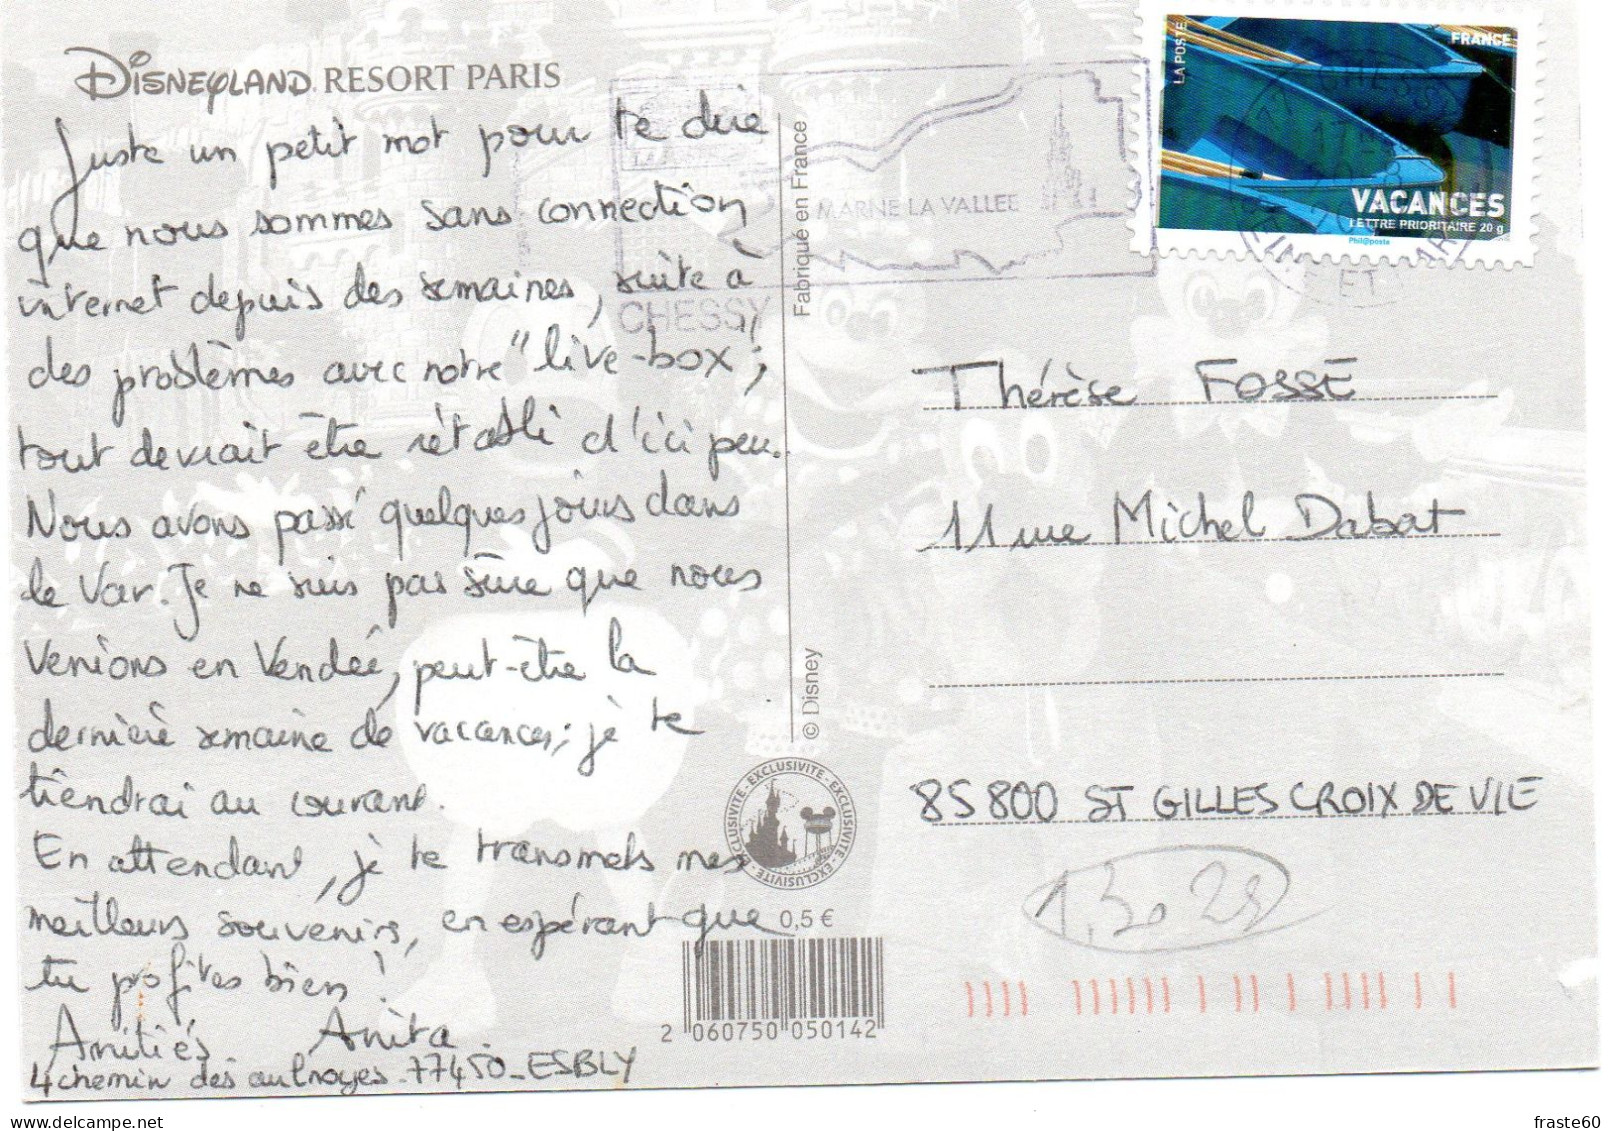 DISNEYLAND RESORT PARIS
Juste un petit mot pour te dire
que nous sommes sans connection
internet depuis des semaines, suite à
des problèmes avec notre "live-box";
tout devrait être rétabli d'ici peu.
Nous avons passé quelques jours dans
le Var. Je ne suis pas sûre que nous
venions en Vendée, peut-être la
dernière semaine de vacances; je te
tiendrai au courant.
En attendant, je te transmets mes
meilleurs souvenirs, en espérant que
tu profites bien!
Amitiés Anita.
4 chemin des aulnoyes - 77450 - ESBLY
Fabriqué en France
© Disney
EXCLUSIVITE - EXCLUSIVITE - EXCLUSIVITE - EXCLUSIVITE
0,5 €
2 060750 050142
MARNE LA VALLEE
CHESSY
LA POSTE
FRANCE
VACANCES
LETTRE PRIORITAIRE 20 g
Phil@poste
CHESSY
SEINE ET MARNE
Thérèse FOSSE
11 rue Michel Dabat
85800 ST GILLES CROIX DE VIE
fraste60